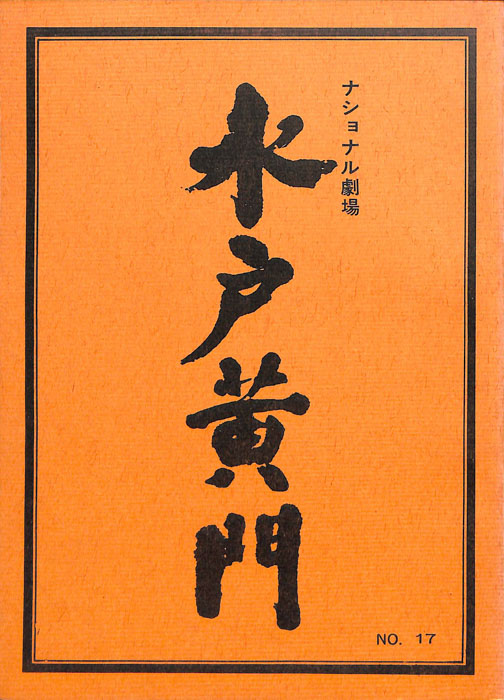 ナショナル劇場
水戸黄門
NO. 17